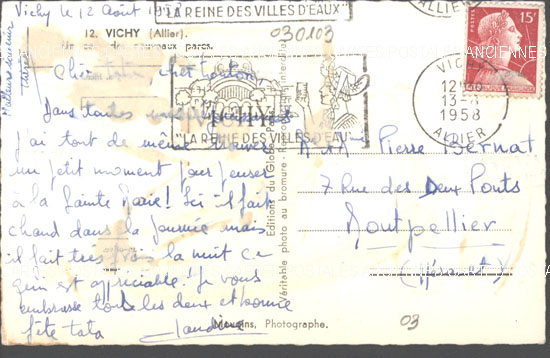 Vichy le 12 Août 1958
"LA REINE DES VILLES D'EAUX"
ALLIER
030103
12. VICHY (Allier).
nouveaux parcs.
Meilleurs
Chère tata, cher tonton,
Dans toutes
j'ai tout de même trouvé
un petit moment pour penser
à la Sainte Marie! Ici il fait
chaud dans la journée mais
il fait très frais la nuit ce
qui est appréciable! Je vous
embrasse tous les deux et bonne
fête tata
VICHY
"LA REINE DES VILLES D'EAU
POSTES
15F
VICHY
12H30
13-8
1958
ALLIER
Pierre Bernat
7 Rue des Deux Ponts
Montpellier
(Hérault)
Editions du Globe
Véritable photo au bromure
interdite
Mougins, Photographe.
03
POSTALES ANCIENNES